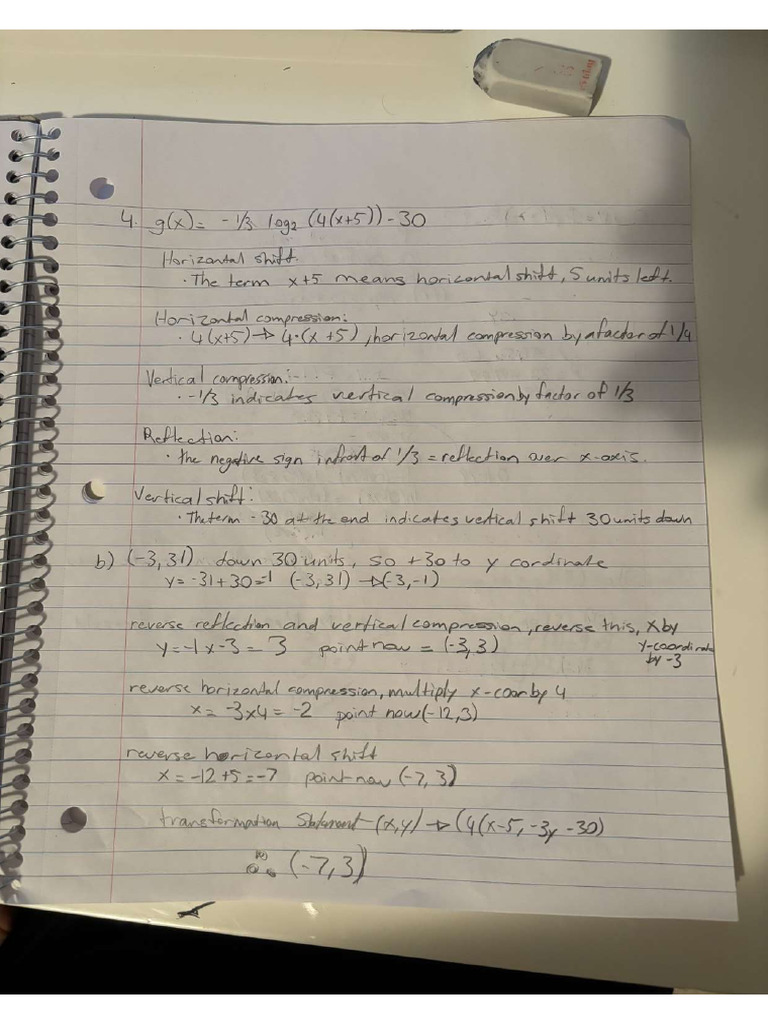 4. g(x) = -1/3 log₂ (4(x+5)) - 30
Horizontal shift.
· The term x+5 means horizontal shift, 5 units left.
Horizontal compression:
· 4(x+5) → 4·(x+5), horizontal compression by a factor of 1/4
Vertical compression:
· -1/3 indicates vertical compression by factor of 1/3
Reflection:
· the negative sign infront of 1/3 = reflection over x-axis.
Vertical shift:
· The term -30 at the end indicates vertical shift 30 units down
b) (-3, 31) down 30 units, so +30 to y cordinate
y = -31 + 30 = -1 (-3, 31) → (-3, -1)
reverse reflection and vertical compression, reverse this, x by
y-coordinate
by -3
y = -1 x -3 = 3 point now = (-3, 3)
reverse horizontal compression, multiply x-coor by 4
x = -3x4 = -2 point now (-12, 3)
reverse horizontal shift
x = -12 + 5 = -7 point now (-7, 3)
transformation Statement - (x, y) → (4(x-5, -3y -30)
∴ (-7, 3)